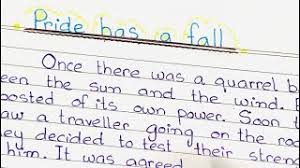 Pride has a fall
Once there was a quarrel b
een the sun and the wind.
osted of its own power. Soon t
aw a traveller going on the roa
ey decided to test their stren
him. It was agreed